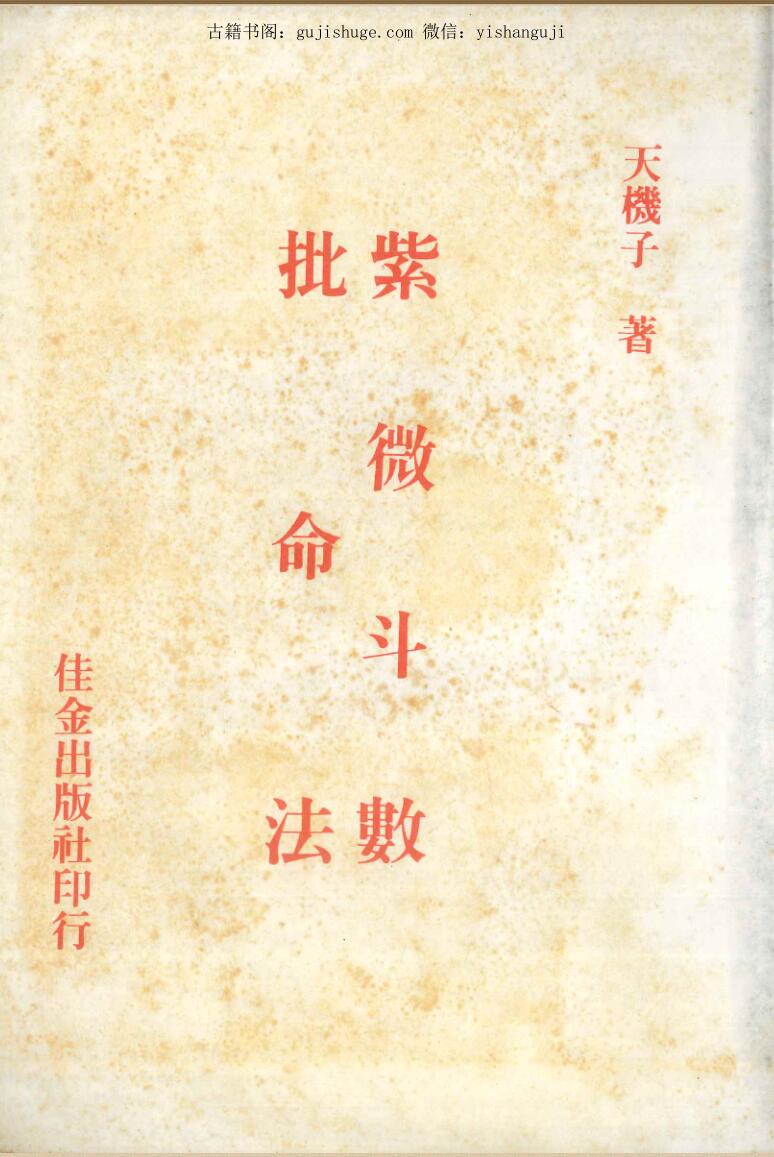 古籍书阁：gujishuge.com 微信：yishanguji
天機子 著
紫微斗數
批命法
佳金出版社印行